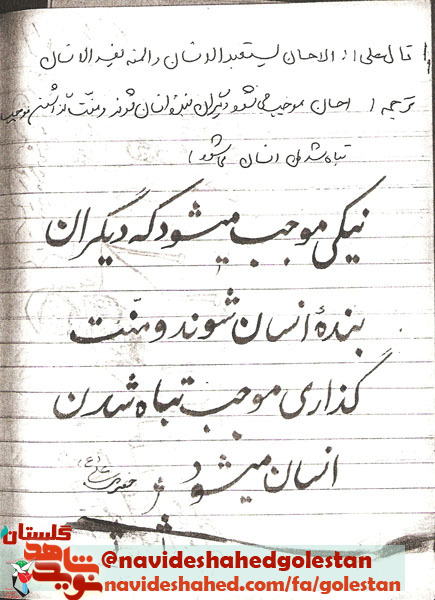 قال علی ( الاحسان یستعبد الانسان و المنه یفسد الانسان
ترجمه ( احسان موجب می شود دیگران بنده انسان شوند و منت گذاشتن موجب
تباه شدن انسان می شود )
نیکی موجب میشود که دیگران
بندهٔ انسان شوند و منّت
گذاری موجب تباه شدن
انسان میشود
حضرت علی (ع)
گلستان
نوید شاهد
@navideshahedgolestan
navideshahed.com/fa/golestan